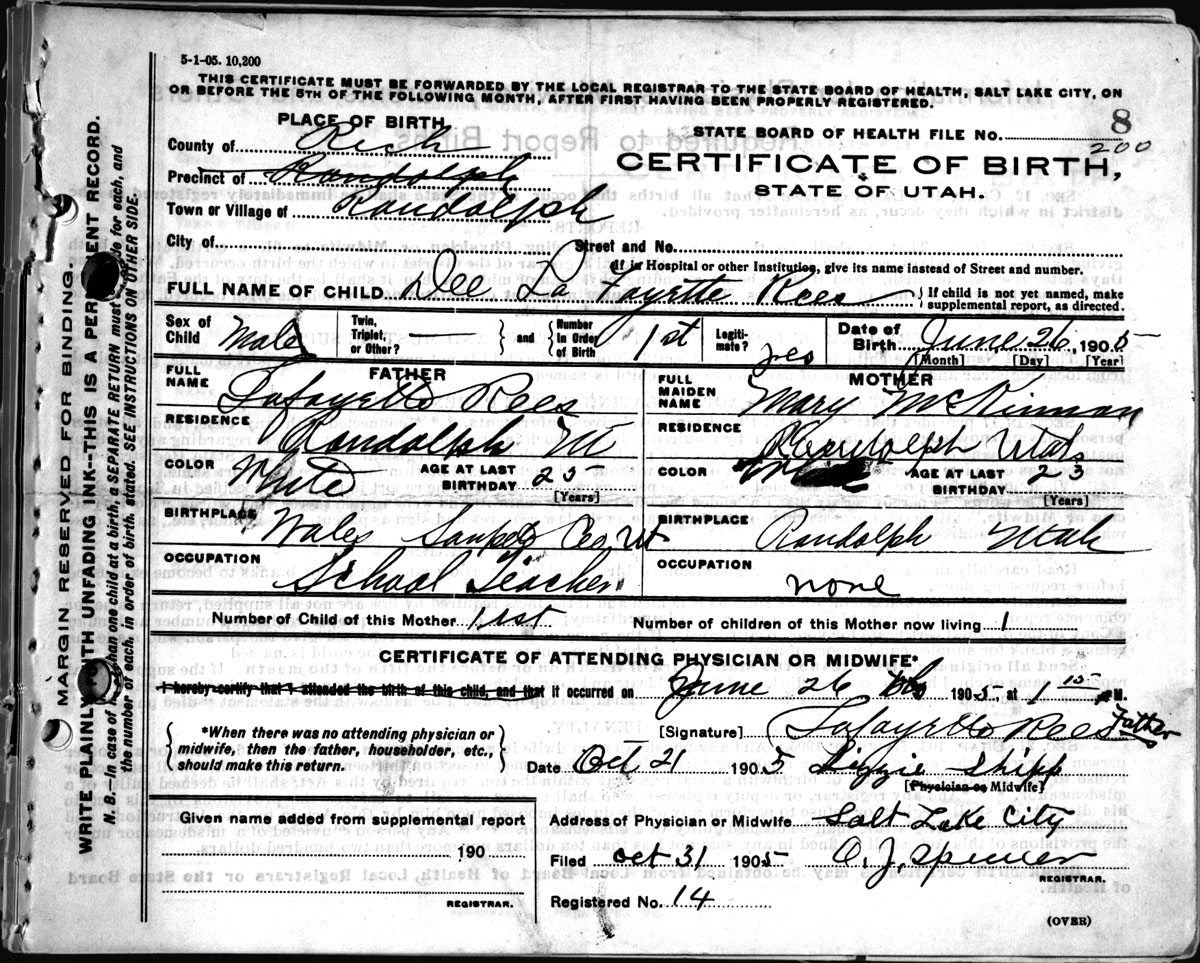 5-1-05. 10,200
THIS CERTIFICATE MUST BE FORWARDED BY THE LOCAL REGISTRAR TO THE STATE BOARD OF HEALTH, SALT LAKE CITY, ON
OR BEFORE THE 5TH OF THE FOLLOWING MONTH, AFTER FIRST HAVING BEEN PROPERLY REGISTERED.
PLACE OF BIRTH
STATE BOARD OF HEALTH FILE NO. 8
200
County of Rich
CERTIFICATE OF BIRTH,
Precinct of Randolph
STATE OF UTAH.
Town or Village of Randolph
City of Street and No.
(If in Hospital or other Institution, give its name instead of Street and number.
FULL NAME OF CHILD Dee La Fayette Rees { If child is not yet named, make supplemental report, as directed.
Sex of Child Male Twin, Triplet, or Other? — { and } Number in Order of Birth 1st Legitimate? yes Date of Birth June 26, 1905
[Month] [Day] [Year]
FATHER
FULL NAME Lafayette Rees
RESIDENCE Randolph Ut
COLOR White AGE AT LAST BIRTHDAY 25
[Years]
BIRTHPLACE Wales Sanpete Co Ut
OCCUPATION School Teacher
MOTHER
FULL MAIDEN NAME Mary McKinnon
RESIDENCE Randolph Utah
COLOR AGE AT LAST BIRTHDAY 23
[Years]
BIRTHPLACE Randolph Utah
OCCUPATION none
Number of Child of this Mother 1st Number of children of this Mother now living 1
CERTIFICATE OF ATTENDING PHYSICIAN OR MIDWIFE*
I hereby certify that I attended the birth of this child, and that it occurred on June 26 1905 at 1 15 M.
*When there was no attending physician or
midwife, then the father, householder, etc.,
should make this return.
[Signature] Lafayette Rees Father
Date Oct 21 1905 Lizzie Shipp
[Physician or Midwife]
Given name added from supplemental report
190
REGISTRAR.
Address of Physician or Midwife Salt Lake City
Filed Oct 31 1905 O. J. Spencer
REGISTRAR.
Registered No. 14
(OVER)
MARGIN RESERVED FOR BINDING.
WRITE PLAINLY WITH UNFADING INK—THIS IS A PERMANENT RECORD.
N. B.—In case of more than one child at a birth, a SEPARATE RETURN must be made for each, and
the number of each, in order of birth, stated. SEE INSTRUCTIONS ON OTHER SIDE.